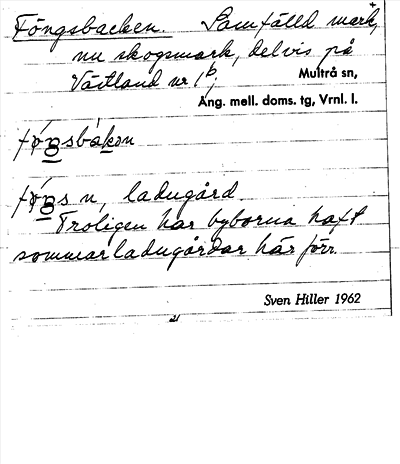 Föngsbacken. Samfälld mark,
nu skogsmark, delvis på
Västland nr 1
Multrå sn,
Ång. mell. doms. tg, Vrnl. l.
n, ladugård.
Troligen har byborna haft
sommarladugårdar här förr.
Sven Hiller 1962